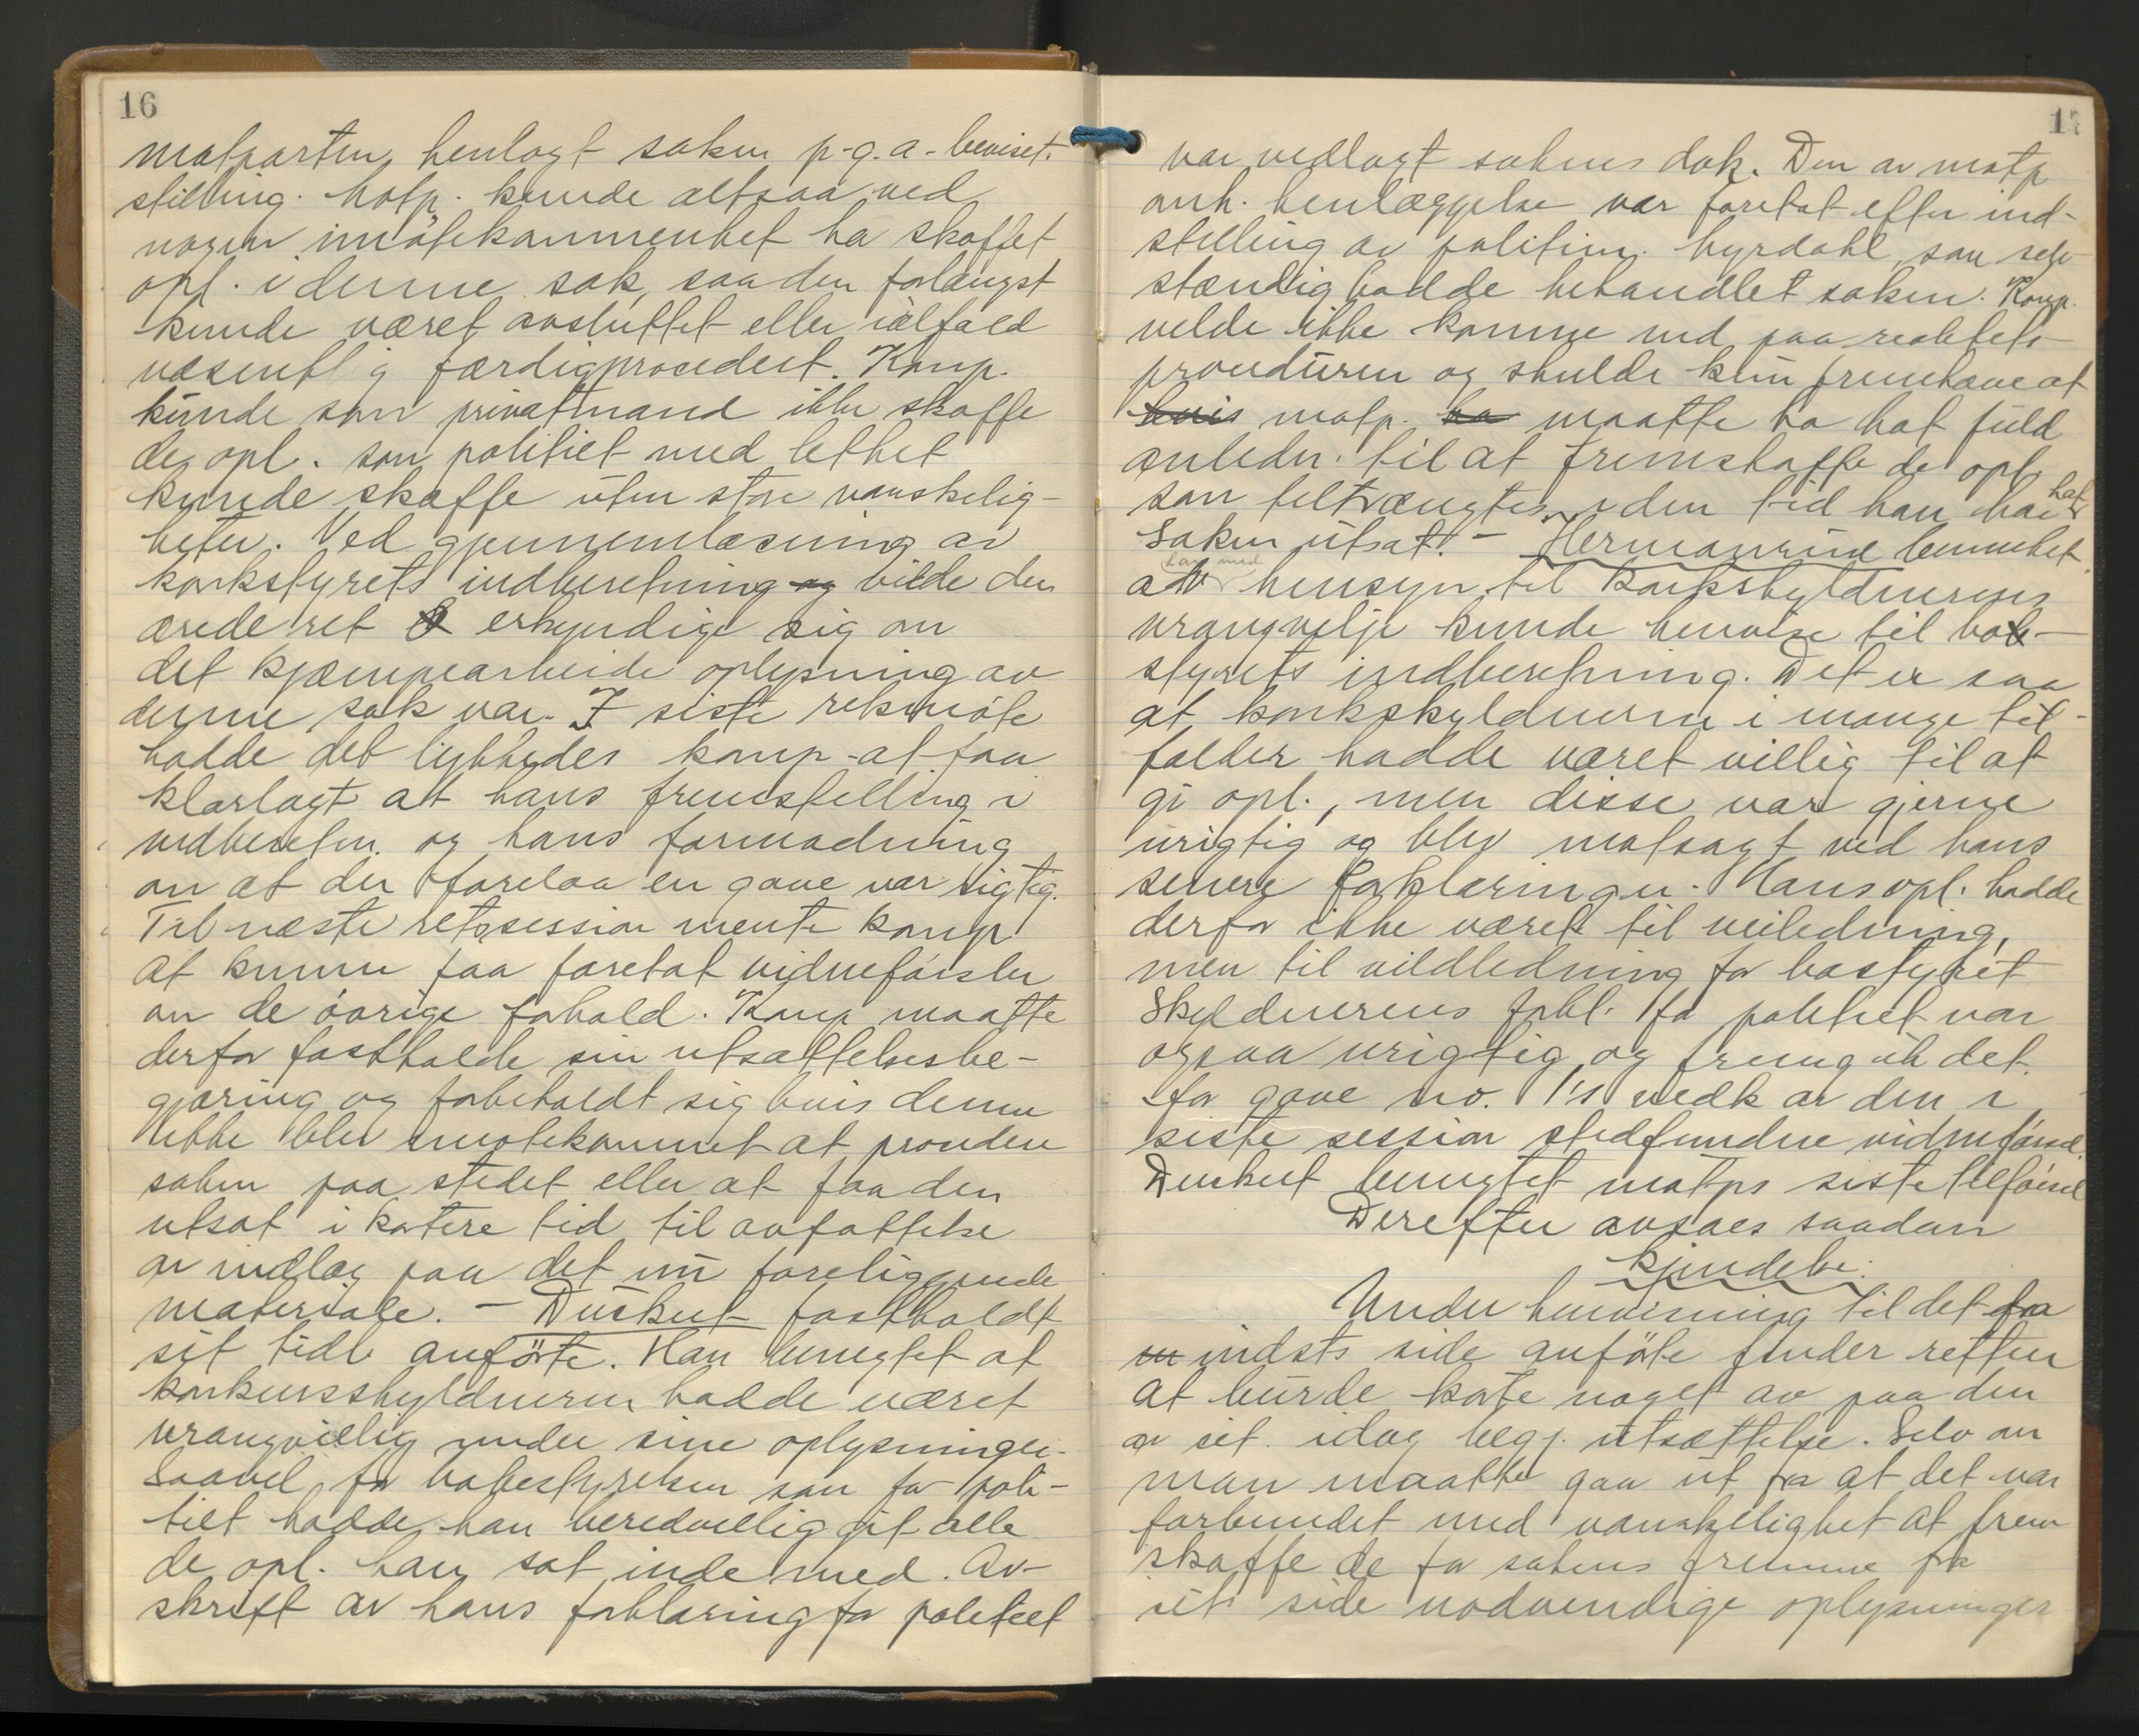 16
motparten henlagt saken p-g.a-beviset.
stilling. Motp. kunde altsaa ved
nogen imøtekommenhet ha skaffet
opl. i denne sak, saa den forlængst
kunde været avsluttet eller ialfald
væsentlig færdigprocedert. Komp.
kunde som privatmand ikke skaffe
de opl. som politiet med lethet
kunde skaffe uten store vanskelig-
heter. Ved gjennemlæsning av
konkstyrets indberetning og vilde den
ærede ret erkyndige sig om
det kjæmpearbeide oplysning av
denne sak var. I siste retsmøte
hadde det lykkedes komp-at faa
klarlagt at hans fremstilling i
indberetn. og hans formodning
om at der forelaa en gave var rigtig.
Til næste retssession mente komp
at kunne faa foretat vidneførsler
om de øvrige forhold. Komp maatte
derfor fastholde sin utsættelsesbe-
gjæring og forbeholdt sig hvis denne
ikke blev imøtekommet at procedere
saken paa stedet eller at faa den
utsat i kortere tid til avfattelse
av indlæg paa det nu foreliggende
materiale. - Duskeit fastholdt
sit tidl anførte. Han benegtet at
konkursskyldneren hadde været
vrangvillig under sine oplysninger.
Saavel for bobestyrelsen som for poli-
tiet hadde han beredvillig git alle
de opl. han sat inde med. Av-
skrift av hans forklaring for politiet
17
var vedlagt sakens dok. Den av motp
anh. henlæggelse var foretat efter ind-
stilling av politim. Myrdahl, som selv-
stændig hadde behandlet saken. Komp.
vilde ikke komme ind paa realitets-
proceduren og skulde kun fremhæve at
hvis motp. ha maatte ha hat fuld
anledn. til at fremskaffe de opl.
som tiltrængtes i den tid han har hat
saken utsat. - Hermanrud bemerket
at han med hensyn til konkskyldnerens
vrangvilje kunde henvise til bo-
styrets indberetning. Det er saa
at konkskyldneren i mange til-
fælder hadde været villig til at
gi opl., men disse var gjerne
urigtig og blev motsagt ved hans
senere forklaringer. Hans opl. hadde
derfor ikke været til veiledning,
men til vildledning for bostyret
Skyldnerens forkl. for politiet var
ogsaa urigtig, og fremgik det
for gave no. 1's vedk av den i
siste session stedfundne vidneførsel.
Duskeit benegtet motps siste tilførsel
Derefter avsaes saadan
kjendelse:
Under henvisning til det fra
indsts side anførte finder retten
at burde korte noget av paa den
av sit. idag begj. utsættelse. Selv om
man maatte gaa ut fra at det var
forbundet med vanskelighet at frem
skaffe de for sakens fremme fra
sit. side nødvendige oplysninger